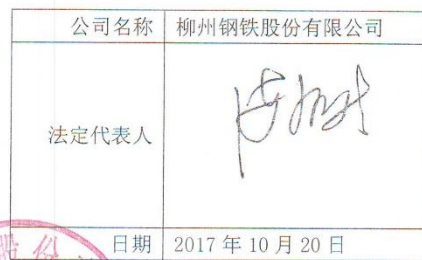 公司名称 柳州钢铁股份有限公司
法定代表人
日期 2017年10月20日
股份